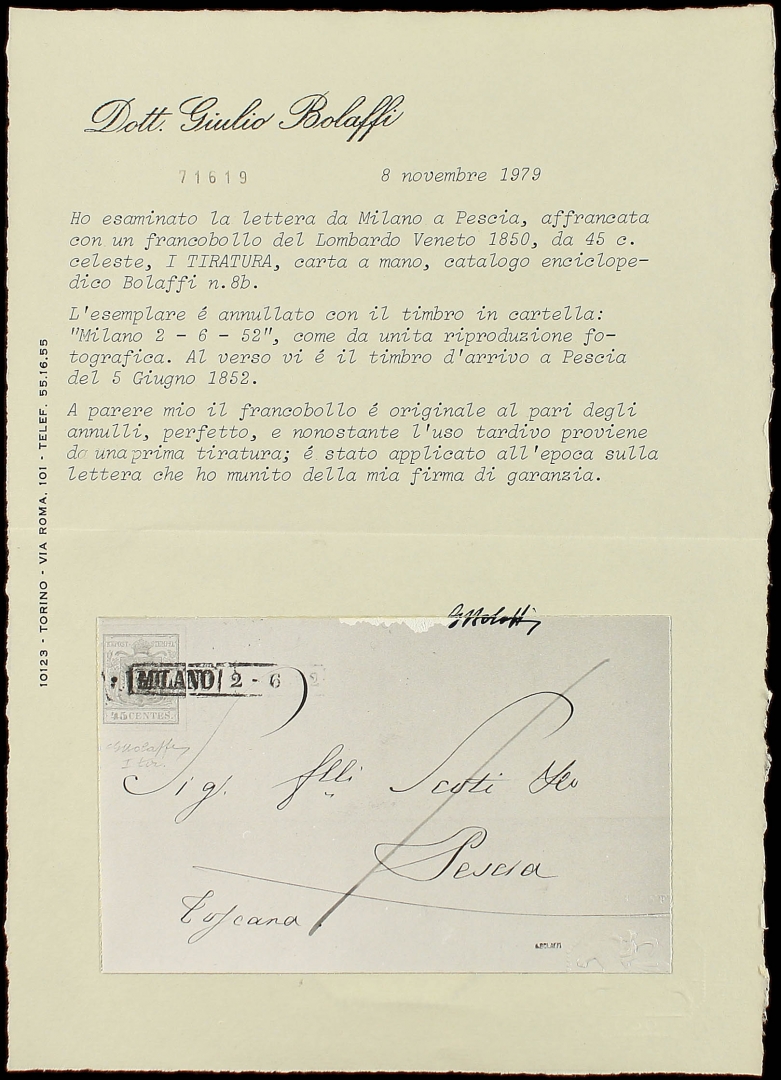 Dott. Giulio Bolaffi
71619
8 novembre 1979
Ho esaminato la lettera da Milano a Pescia, affrancata
con un francobollo del Lombardo Veneto 1850, da 45 c.
celeste, I TIRATURA, carta a mano, catalogo enciclope-
dico Bolaffi n.8b.
L'esemplare é annullato con il timbro in cartella:
"Milano 2 - 6 - 52", come da unita riproduzione fo-
tografica. Al verso vi é il timbro d'arrivo a Pescia
del 5 Giugno 1852.
A parere mio il francobollo é originale al pari degli
annulli, perfetto, e nonostante l'uso tardivo proviene
da una prima tiratura; é stato applicato all'epoca sulla
lettera che ho munito della mia firma di garanzia.
10123 - TORINO - VIA ROMA, 101 - TELEF. 55.16.55
GBolaffi
MILANO 2 - 6
45 CENTES.
GBolaffi
I tir.
Sig. flli Scoti
Pescia
Toscana
A.BOLAFFI